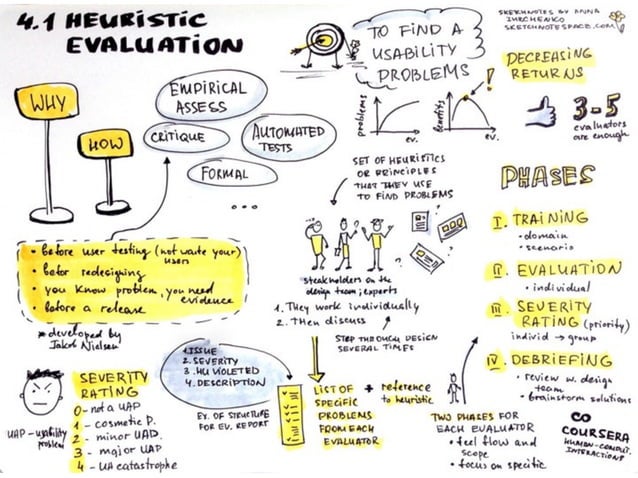 4.1 HEURISTIC
EVALUATION
TO FIND A
USABILITY
PROBLEMS
SKETCHNOTES BY ANNA
IURCHENKO
SKETCHNOTESPACE.COM
DECREASING
RETURNS
problems
ev.
benefits
ev.
!
3-5
evaluators
are enough
WHY
HOW
EMPIRICAL
ASSESS
CRITIQUE
AUTOMATED
TESTS
FORMAL
...
• Before user testing (not waste your)
users
• befor redesigning
• you know problem, you need
evidence
• before a release
* developed by
Jakob Nielsen
SET OF HEURISTICS
OR PRINCIPLES
THAT THEY USE
TO FIND PROBLEMS
? ? ?
Steakholders on the
design team; experts
1. They work individually
2. Then discuss
STEP THROUGH DESIGN
SEVERAL TIMES
PHASES
I. TRAINING
• domain
• scenario
II. EVALUATION
• individual
III. SEVERITY
RATING (priority)
individ → group
IV. DEBRIEFING
• review w. design
team
• brainstorm solutions
SEVERITY
RATING
0 - not a UAP
1 - cosmetic P.
2 - minor UAP.
3 - major UAP
4 - UA catastrophe
UAP - usability
problem
1. ISSUE
2. SEVERITY
3. HU VIOLETED
4. DESCRIPTION
EX. OF STRUCTURE
FOR EV. REPORT
LIST OF
SPECIFIC
PROBLEMS
FROM EACH
EVALUATOR
+ reference
to heuristic
TWO PHASES FOR
EACH EVALUATOR
• feel flow and
scope
• focus on specific
CO
COURSERA
HUMAN-COMPUT.
INTERACTIONS